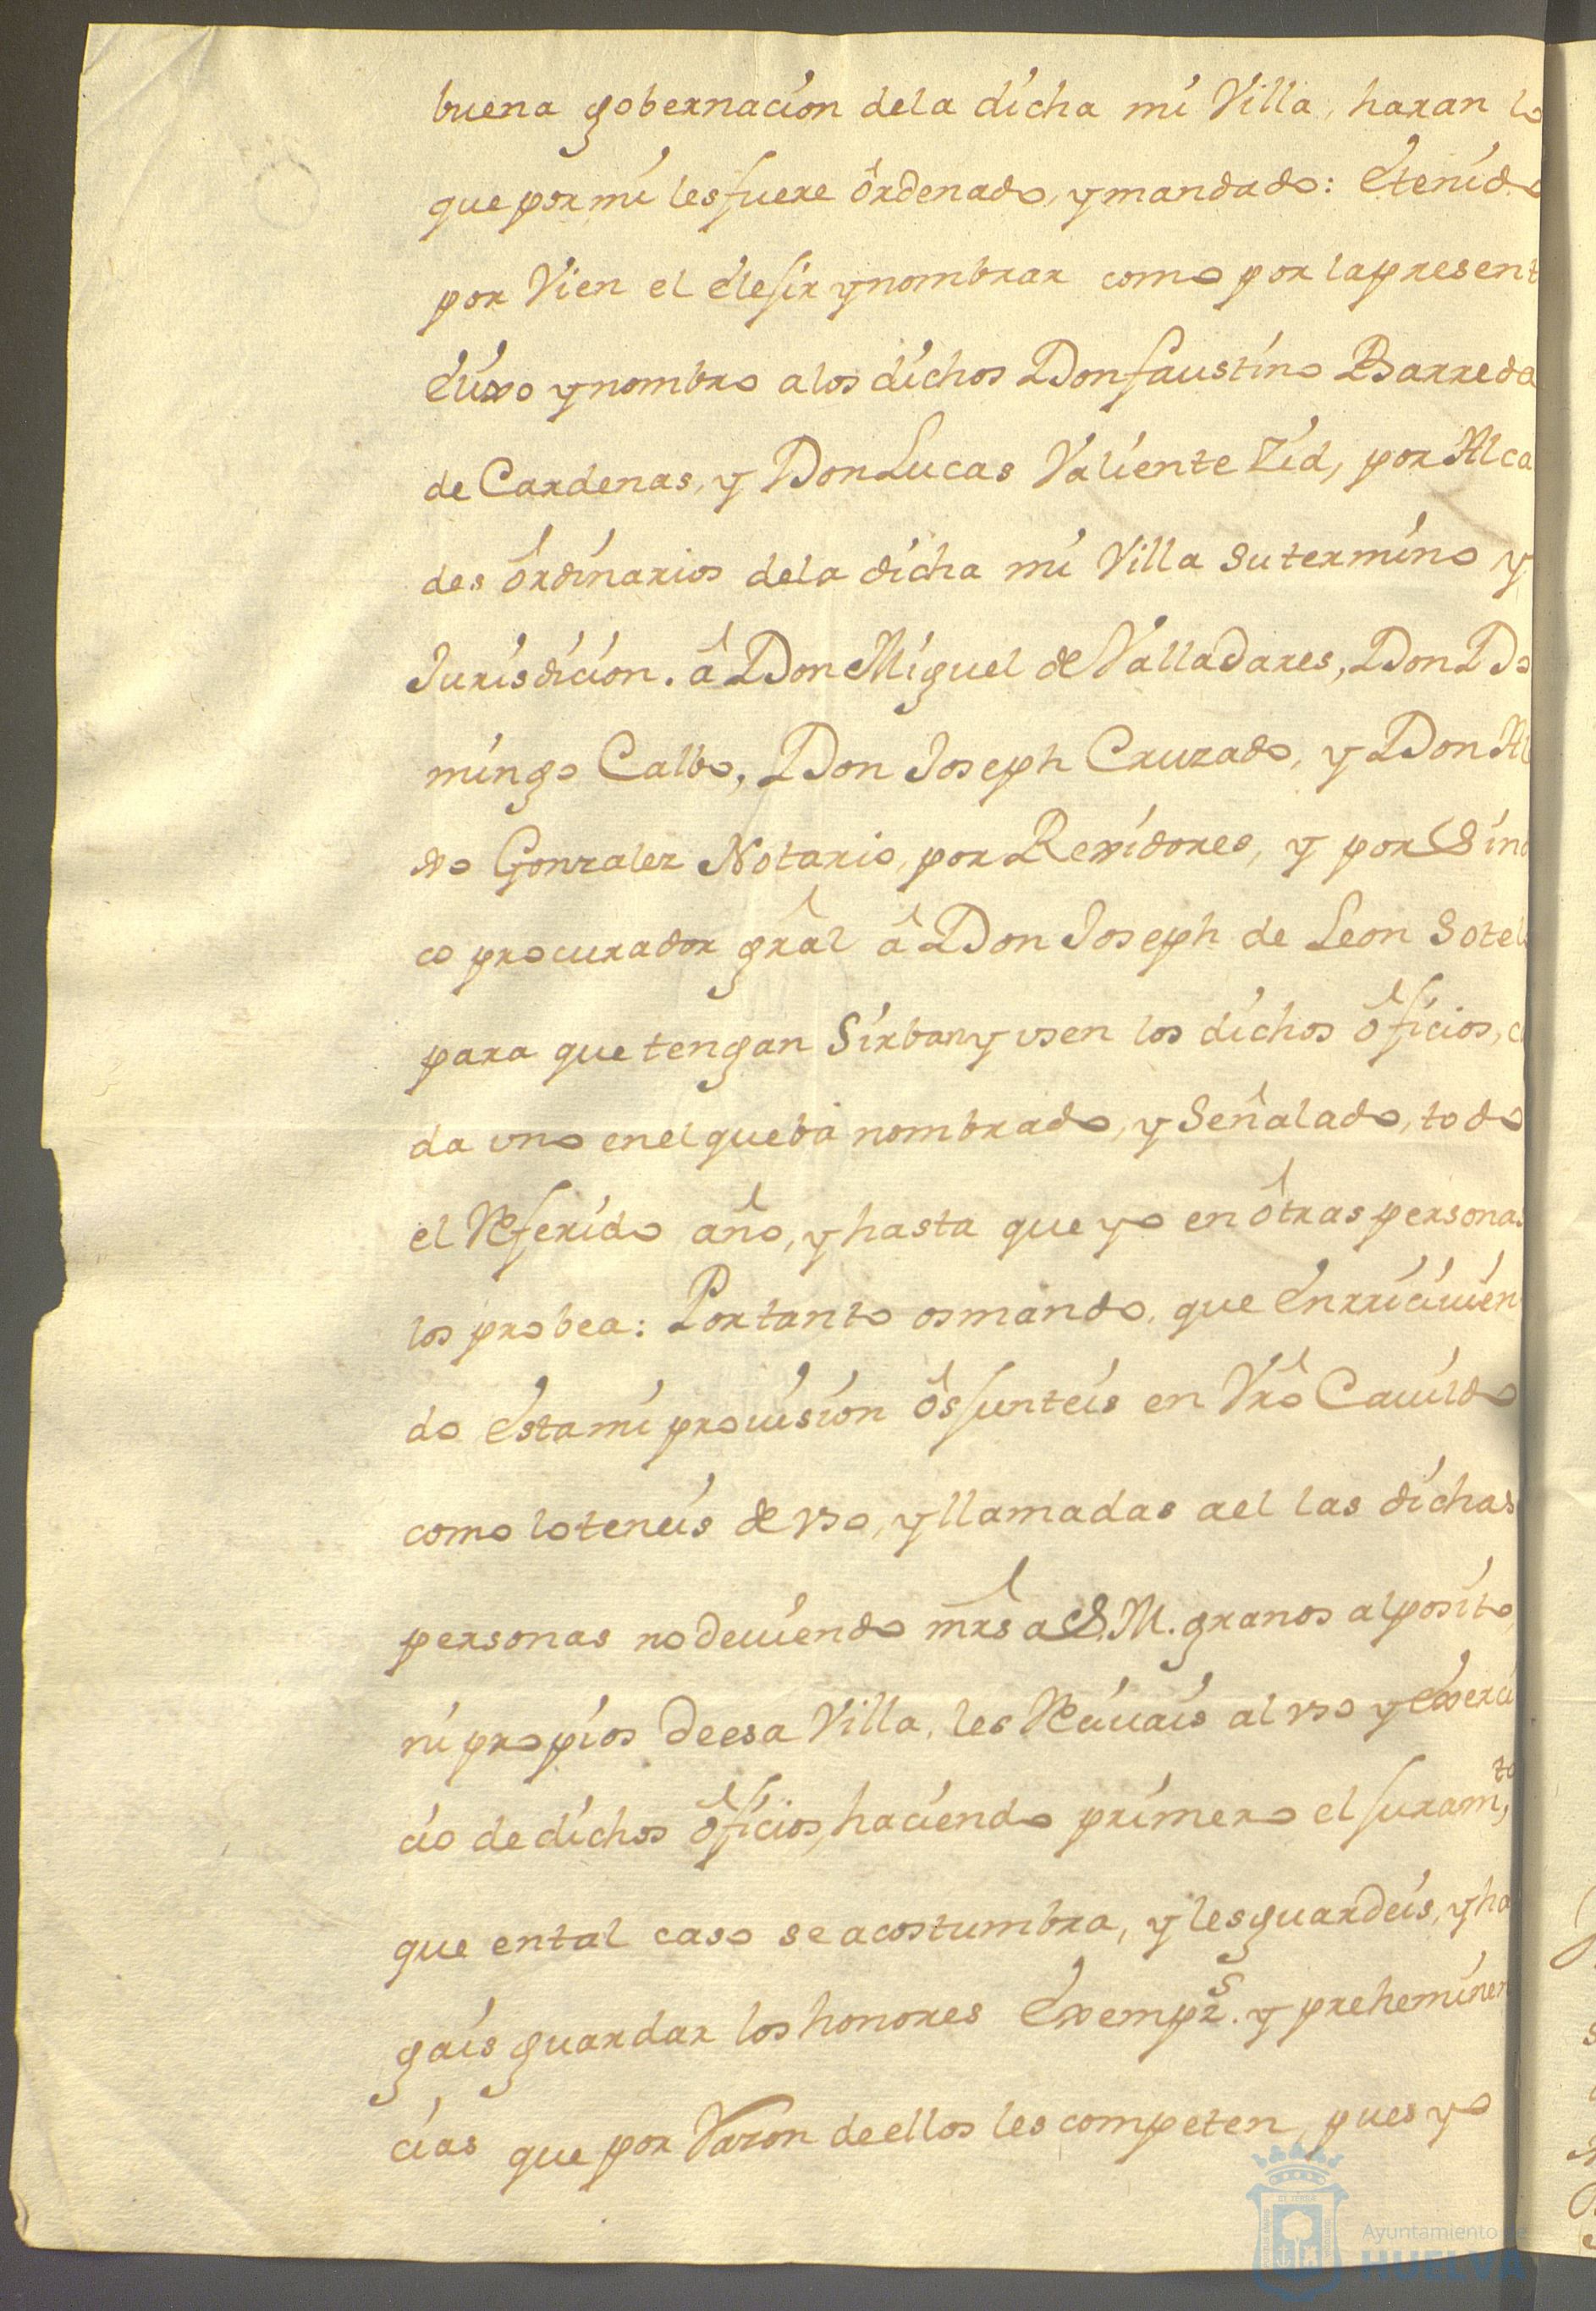 buena gobernacion dela dicha mi Villa, haran lo
que por mi les fuere ôrdenado, y mandado: étenido
por Vien el elejir y nombrar como por la present
élixo y nombro a los dichos Don faustino Barreda
de Cardenas, y Don Lucas Valiente Zid, por Alca
des ôrdinarios dela dicha mi Villa su termino y
Jurisdicion. â Don Miguel de Valladares, Don Do
mingo Calbo, Don Joseph Cruzado, y Don Al
Gonzalez Notario, por Rexidores, y por Sindi
co procurador grâl â Don Joseph de Leon Sotel
para que tengan Sirban y vsen los dichos ôficios, c
da vno en el que bá nombrado, y Señalado, todo
el Referido año, y hasta que yo en ôtras personas
los probea: Por tanto os mando, que énrriciuien
do ésta mi prouision ôs junteis en Vrô Cauildo
como lo teneis de vso, y llamadas a el las dichas
personas no deuiendo mrs a S.M. granos al posito,
ni propios de esa Villa, les Reciuais al vso y éxerci
cio de dichos ôficios, haciendo primero el juram.to,
que en tal caso se acostumbra, y les guardeis, y ha
gais guardar los honores éxempz.s y preheminen
cias que por Razon de ellos les competen, pues yo
Ayuntamiento de
HUELVA